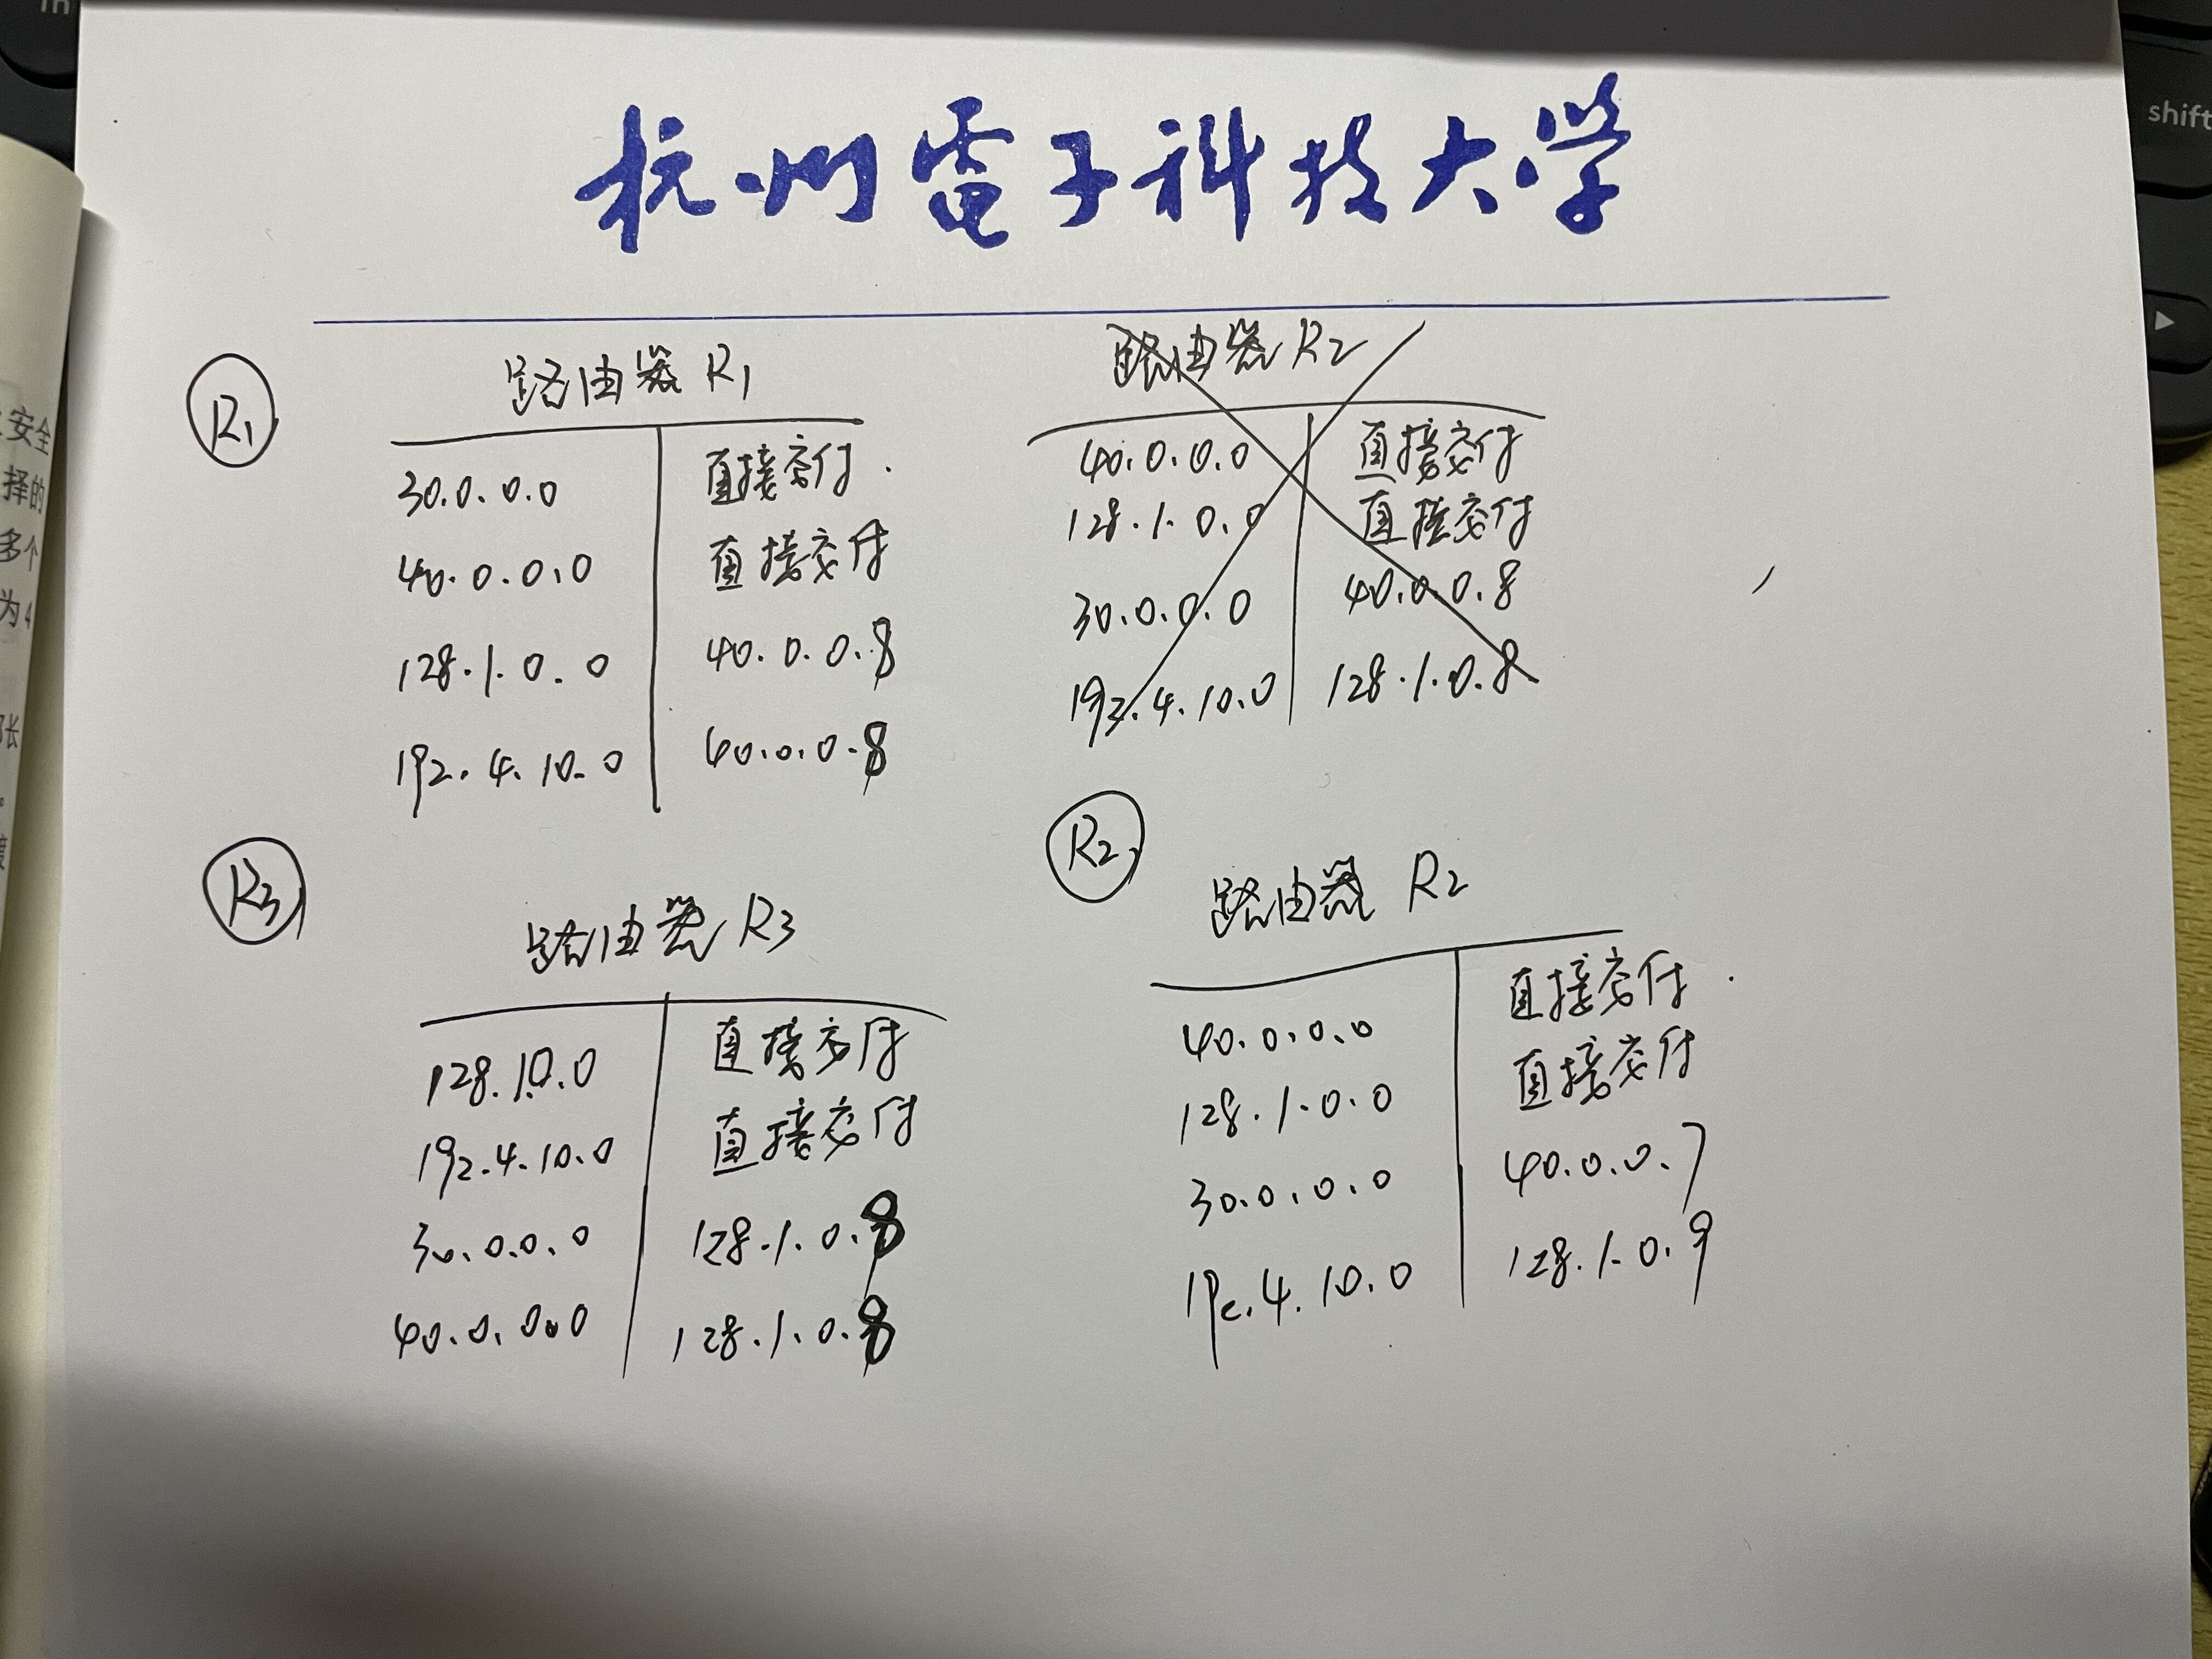 in
shift
安全
择的
多个
为4
长
。
杭州電子科技大学
R1
路由器 R1
30.0.0.0 直接交付.
40.0.0.0 直接交付
128.1.0.0 40.0.0.8
192.4.10.0 40.0.0.8
路由器 R2
40.0.0.0 直接交付
128.1.0.0 直接交付
30.0.0.0 40.0.0.8
192.4.10.0 128.1.0.8
R3
路由器 R3
128.1.0.0 直接交付
192.4.10.0 直接交付
30.0.0.0 128.1.0.8
40.0.0.0 128.1.0.8
R2
路由器 R2
40.0.0.0 直接交付.
128.1.0.0 直接交付
30.0.0.0 40.0.0.7
192.4.10.0 128.1.0.9